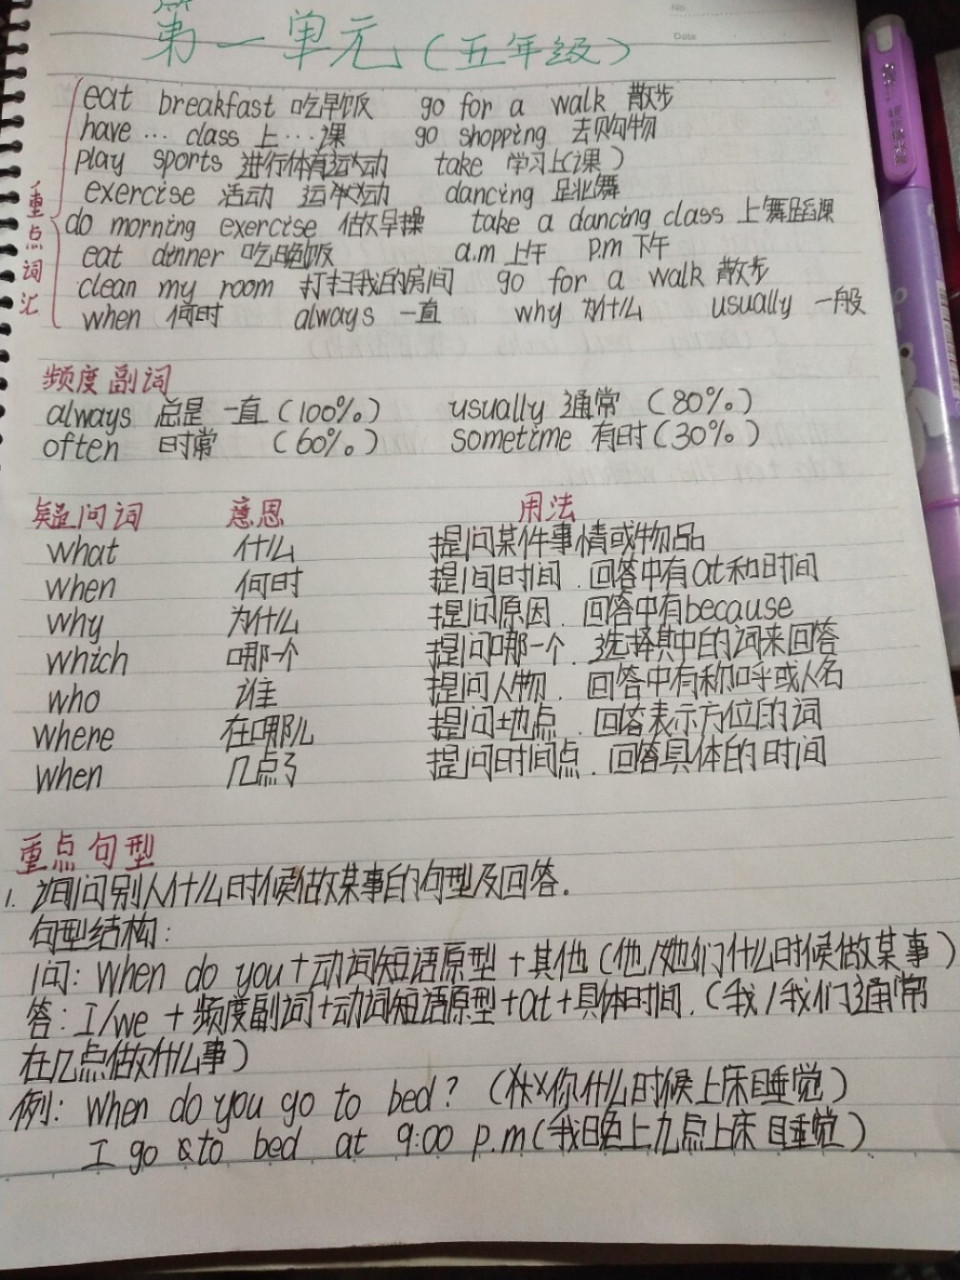 第一单元(五年级)
No
Date
重点词汇
eat breakfast 吃早饭 go for a walk 散步
have … class 上…课 go shopping 去购物
play sports 进行体育运动 take 学习上(课)
exercise 活动 运动 dancing 跳舞
do morning exercise 做早操 take a dancing class 上舞蹈课
eat dinner 吃晚饭 a.m 上午 p.m 下午
clean my room 打扫我的房间 go for a walk 散步
when 何时 always 一直 why 为什么 usually 一般
频度副词
always 总是 一直(100%) usually 通常 (80%)
often 时常 (60%) sometime 有时(30%)
疑问词 意思 用法
what 什么 提问某件事情或物品
when 何时 提问时间.回答中有at和时间
why 为什么 提问原因.回答中有because
which 哪一个 提问哪一个.选择其中的词来回答
who 谁 提问人物.回答中有称呼或人名
where 在哪儿 提问地点.回答表示方位的词
when 几点了 提问时间点.回答具体的时间
重点句型
1. 询问别人什么时候做某事的句型及回答.
句型结构:
问: When do you+动词短语原型+其他(他/她们什么时候做某事)
答: I/we+频度副词+动词短语原型+at+具体时间.(我/我们通常
在几点做什么事)
例: When do you go to bed? (你什么时候上床睡觉)
I go to bed at 9:00 p.m(我晚上九点上床睡觉)